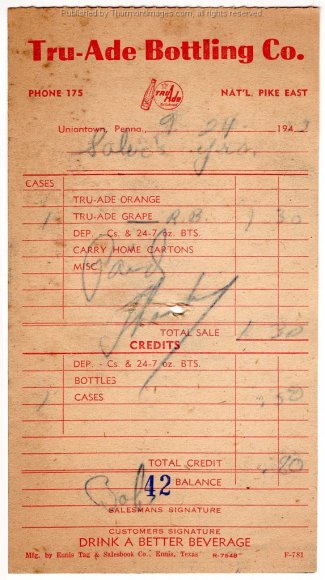 Copyright © Thurmontimages.com, all rights reserved
Tru-Ade Bottling Co.
PHONE 175 TRU Ade NAT'L. PIKE EAST
Uniontown, Penna., 9 - 24 194
CASES
TRU-ADE ORANGE
1 TRU-ADE GRAPE — R.B. 1 30
DEP. - Cs. & 24-7 oz. BTS.
CARRY HOME CARTONS
MISC.
Paid
Thanks
TOTAL SALE 1 30
CREDITS
DEP. - Cs. & 24-7 oz. BTS.
BOTTLES
1 CASES
TOTAL CREDIT .80
42 BALANCE
Bob
SALESMANS SIGNATURE
CUSTOMERS SIGNATURE
DRINK A BETTER BEVERAGE
Mfg. by Ennis Tag & Salesbook Co., Ennis, Texas R-7548 F-781